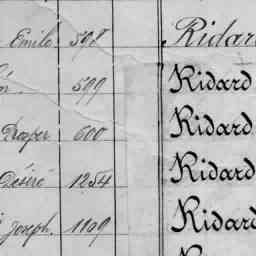 Emile 598 Ridard
599 Ridard
Prosper 600 Ridard
Désiré 1254 Ridard
Joseph. 1109 Ridard